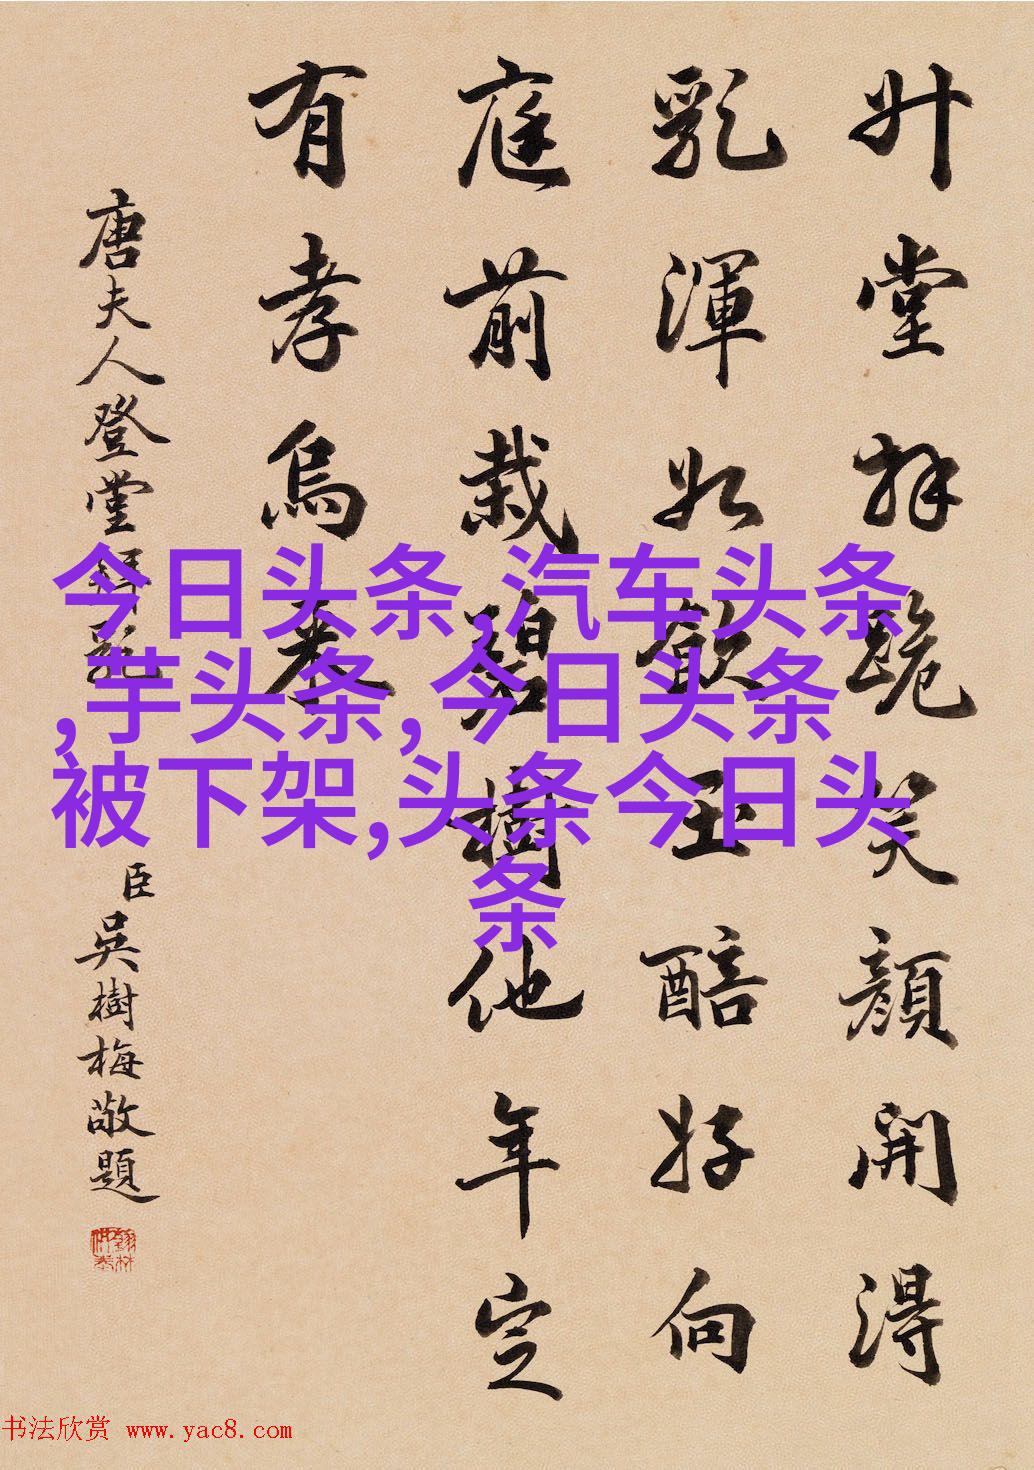 升堂拜跪笑顏開得
乳渾如飲玉醅好向
庭前栽碧樹他年定
有孝烏來
唐夫人登堂拜
臣吳樹梅敬題
今日头条,汽车头条
,芋头条,今日头条
被下架,头条今日头
条
书法欣赏 www.yac8.com